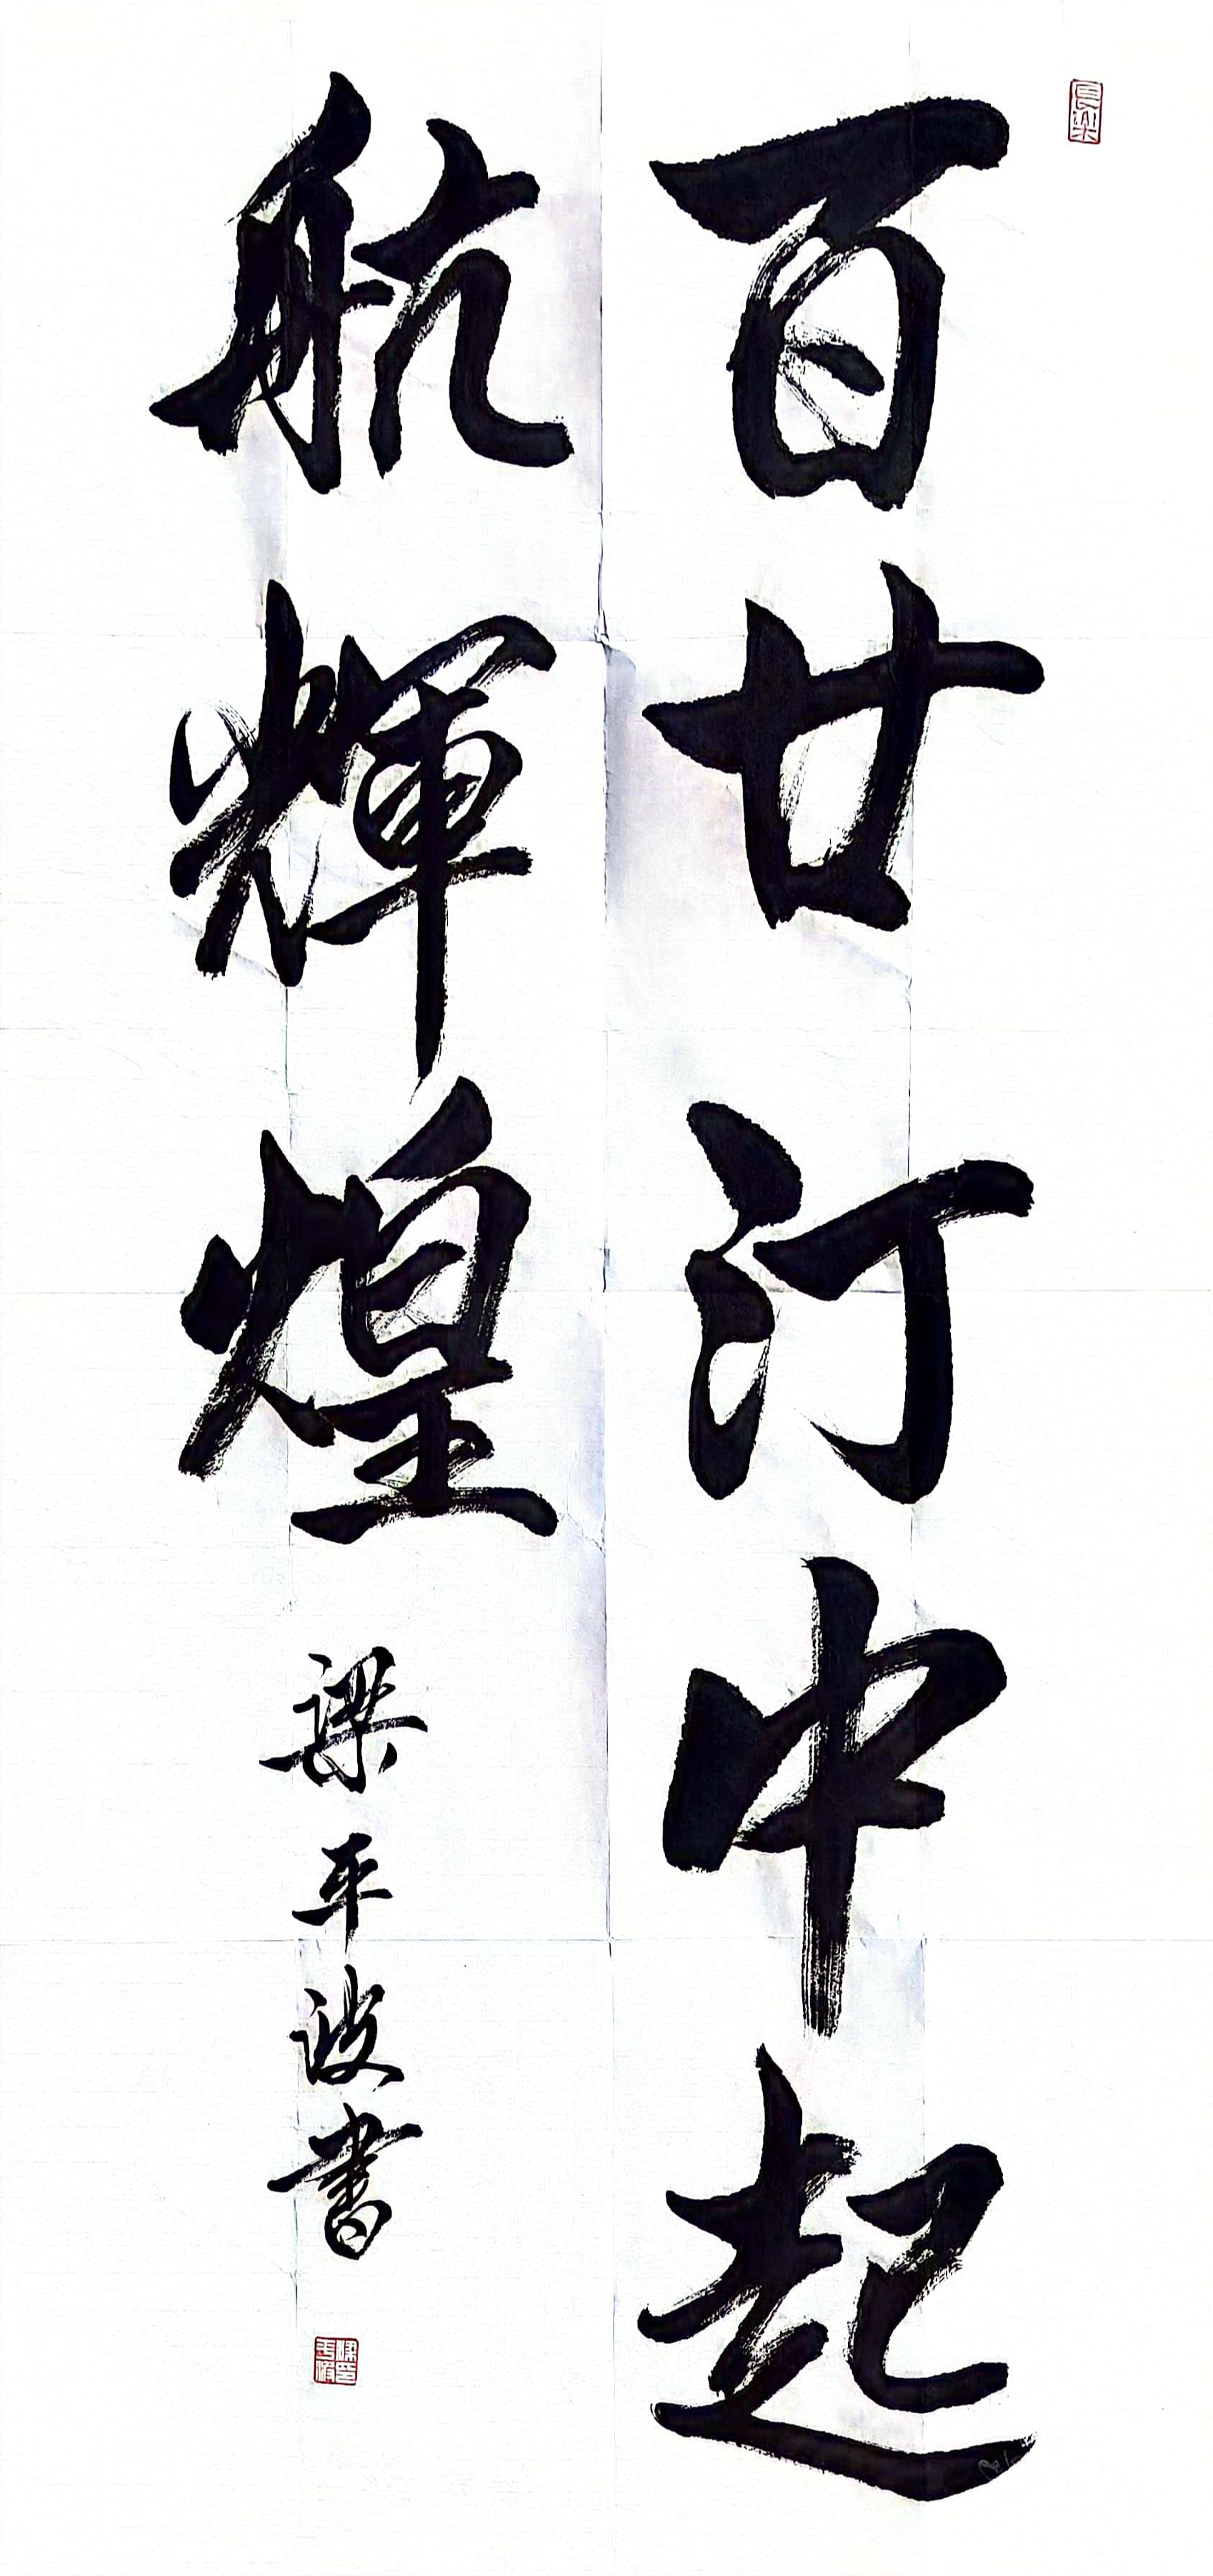 百廿汀中起
航輝煌
梁平波書